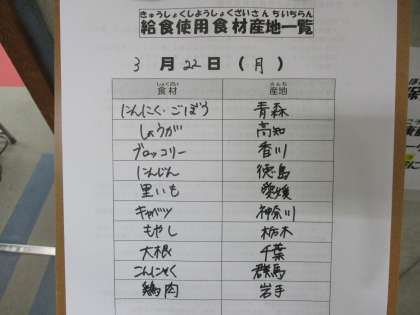 きゅうしょくしようしょくざいさんちいちらん
給食使用食材産地一覧
3月22日(月)
しょくざい さんち
食材 産地
にんにく・ごぼう 青森
しょうが 高知
ブロッコリー 香川
にんじん 徳島
里いも 愛媛
キャベツ 神奈川
もやし 栃木
大根 千葉
こんにゃく 群馬
鶏肉 岩手